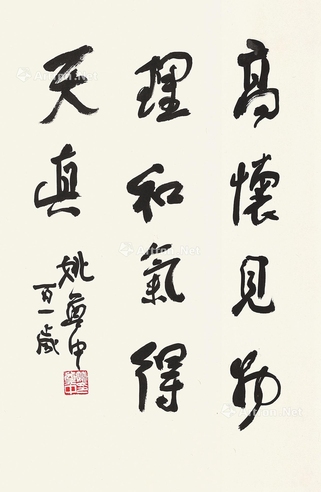 高懷見物
理和氣得
天真
姚奠中
百一歲